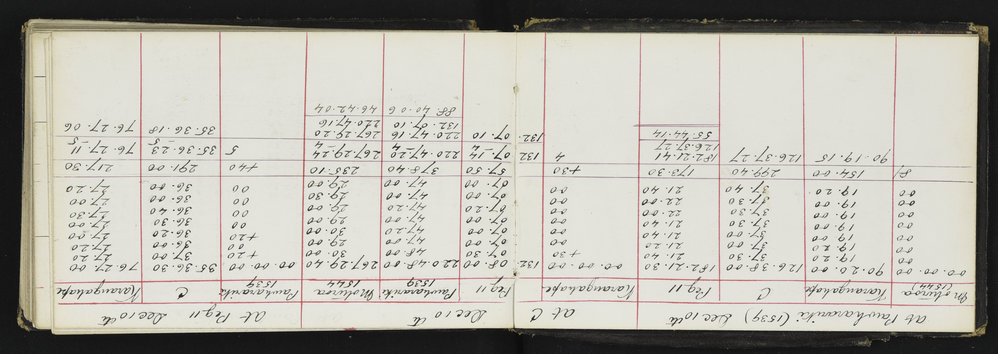 at Pawharaniki (1539) Dec 10th at C Dec 10th at Peg 11 Dec 10th
Moturoa (1544) Karangahape C Peg 11 Karangahape Peg 11 Pawharaniki 1539 Moturoa 1544 Pawharaniki 1539 C Karangahape
00.00.00 90.20.00 126.38.00 182.21.30 00.00.00 132.08.00 220.48.00 267.29.40 00.00.00 35.36.30 76.27.00
00 19.20 37.00 21.20 +30 07.30 48.00 30.00 +20 37.00 27.20
00 19.20 37.00 21.20 00 07.00 47.00 29.00 00 36.00 27.20
00 19.00 37.00 21.40 00 07.00 47.20 30.00 +20 36.20 27.00
00 19.00 37.30 21.40 00 07.00 47.00 29.00 00 36.30 27.00
00 19.00 37.30 22.00 00 07.20 47.20 29.00 00 36.40 27.30
00 19.00 37.30 22.00 00 07.00 47.00 29.30 00 36.00 27.00
00 19.20 37.40 21.40 00 07.00 47.00 29.00 00 36.00 27.20
8) 154.00 299.40 173.30 +30 57.50 378.40 235.10 +40 291.00 217.30
90.19.15 126.37.27 182.21.41 4 132.07.14 220.47.20 267.29.24 5 35.36.23 76.27.11
126.37.27 -4 4 4 -5 -5
55.44.14 132.07.10 220.47.16 267.29.20 35.36.18 76.27.06
132.07.10 220.47.16
88.40.06 46.42.04